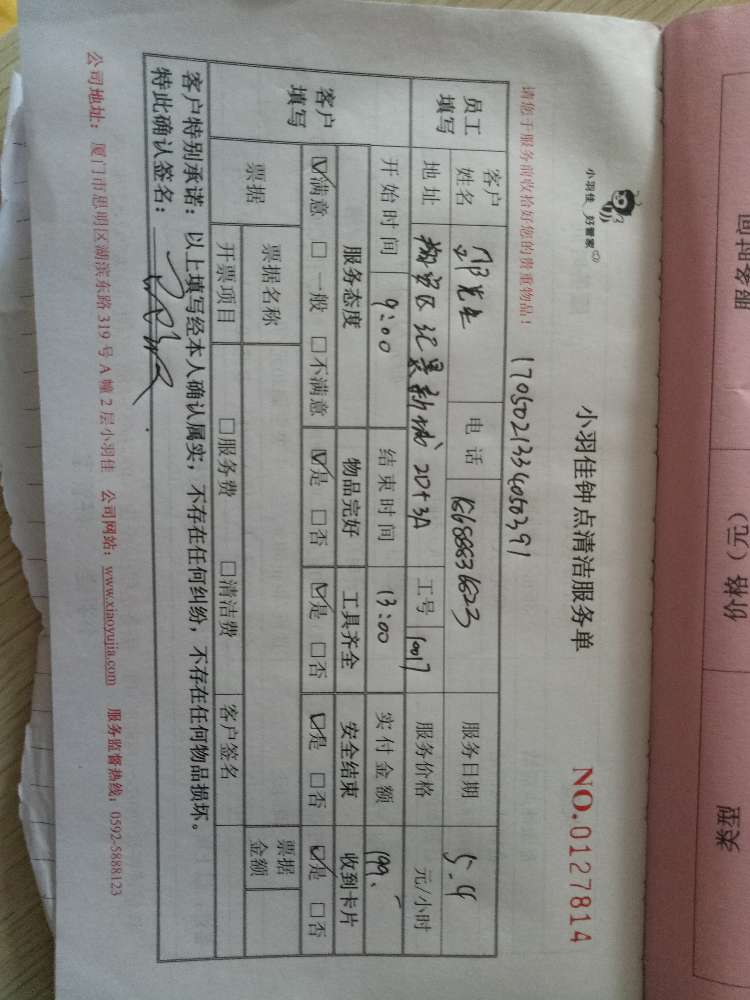 小羽佳 好管家
小羽佳钟点清洁服务单
NO.0127814
请您于服务前收拾好您的贵重物品!
1705021334050391
员工填写
客户姓名
先生
电话
服务日期
5.4
地址
纪景新城 20+3A
工号
10017
服务价格
元/小时
客户填写
开始时间
9:00
结束时间
13:00
实付金额
199.-
服务态度
物品完好
工具齐全
安全结束
收到卡片
☑满意 □一般 □不满意
☑是 □否
☑是 □否
☑是 □否
☑是 □否
票据
票据名称
票据金额
开票项目
□服务费 □清洁费
客户签名
客户特别承诺:以上填写经本人确认属实,不存在任何纠纷,不存在任何物品损坏。
特此确认签名:
公司地址:厦门市思明区湖滨东路319号A幢2层小羽佳 公司网站:www.xiaoyujia.com 服务监督热线:0592-5888123
服务时间
价格(元)